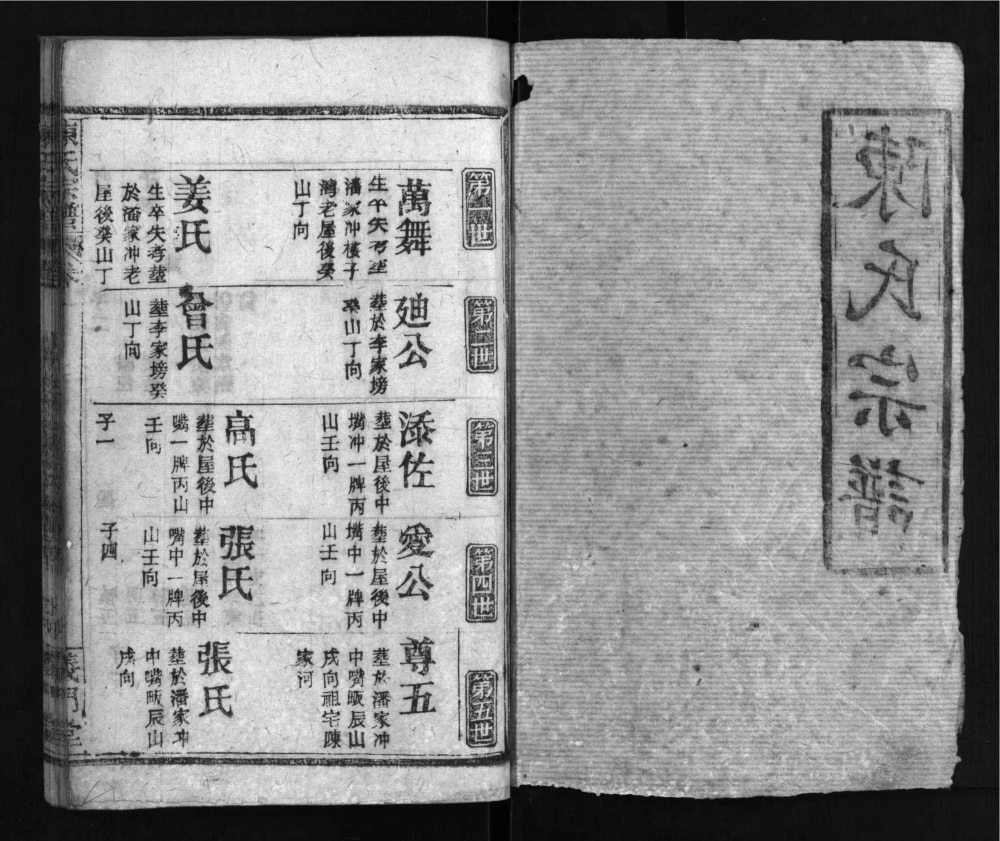 陳氏宗譜
第一世
萬舞
生卒失考塟
潘家冲樓子
灣老屋後癸
山丁向
姜氏
生卒失考塟
於潘家冲老
屋後癸山丁
第二世
廸公
塟於李家塝
癸山丁向
曾氏
塟李家塝癸
山丁向
第三世
添佐
塟於屋後中
嘴冲一牌丙
山壬向
高氏
塟於屋後中
嘴一牌丙山
壬向
子一
第四世
愛公
塟於屋後中
嘴中一牌丙
山壬向
張氏
塟於屋後中
嘴中一牌丙
山壬向
子四
第五世
尊五
塟於潘家冲
中嘴畈辰山
戌向祖宅陳
家河
張氏
塟於潘家冲
中嘴畈辰山
戌向
陳氏宗譜
卷
義門堂